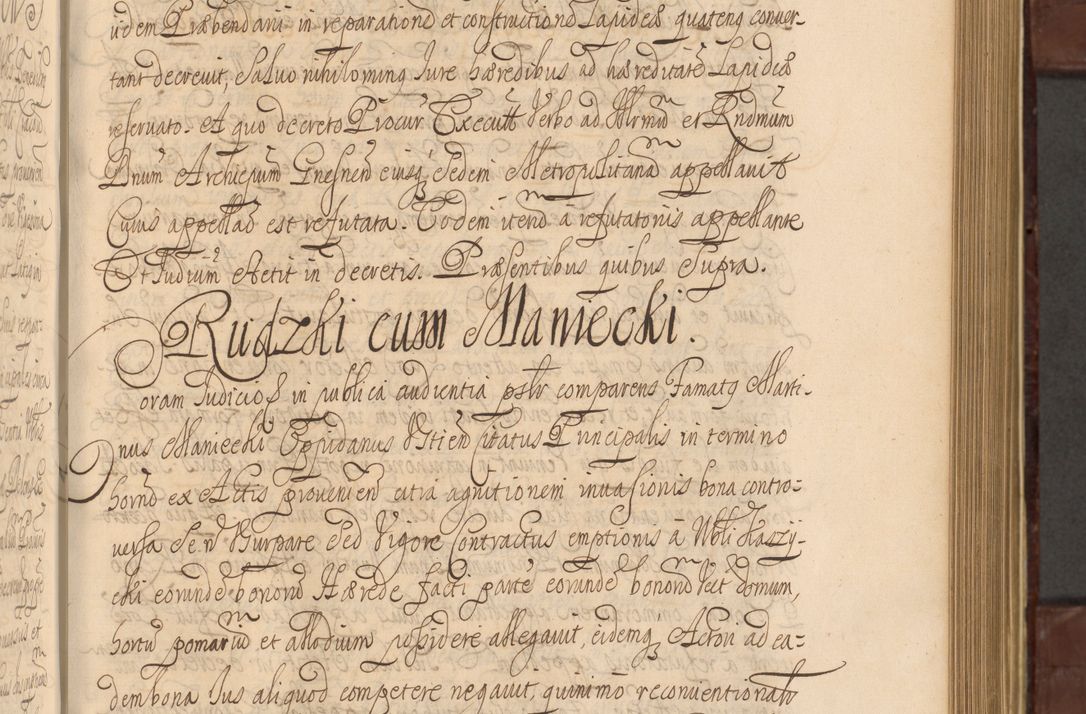 iidem Præbendarii in reparatione et constructione Lapideæ quatenq conver-
tant decrevit, Salvo nihilominq Jure hæredibus ad hæreditate Lapideæ
reservato. A quo decreto Procur Executt Verbo ad Illrmu et Rndmum
Dnum Archiepum Gnesnen eiusq Sedem Metropolitana appellavit
Cuius appellao est refutata. Eodem item a refutatoriis appellante
Et Judium stetit in decretis. Præsentibus quibus Supra.
Rudzki cum Maniecki.
Coram Judicio & in publica audientia pstr comparens Famatq Marti-
nus Maniecki Oppidanus Ustien Citatus Principalis in termino
horno ex Actis provenien catia agnitionem invasionis bona contro-
versa Se n Usurpare Sed Vigore Contractus emptionis a Wbli Kaszy-
cki eorunde bonoru Hærede facti parte eorunde bonoru vet domum,
hortu pomariu et allodium possidere allegavit, eidemq Actori ad ea-
dem bona Jus aliquod competere negavit, quinimo reconventionalr